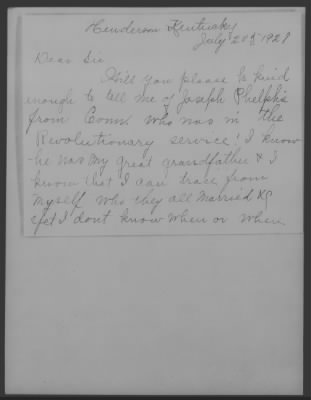 Henderson Kentucky
July 20th 1928
Dear Sir
Will you please be kind
enough to tell me of Joseph Phelphs
from Conn. who was in the
Revolutionary service! I know
he was my great grandfather & I
know that I can trace from
myself who they all married &c
yet I don't know when or when